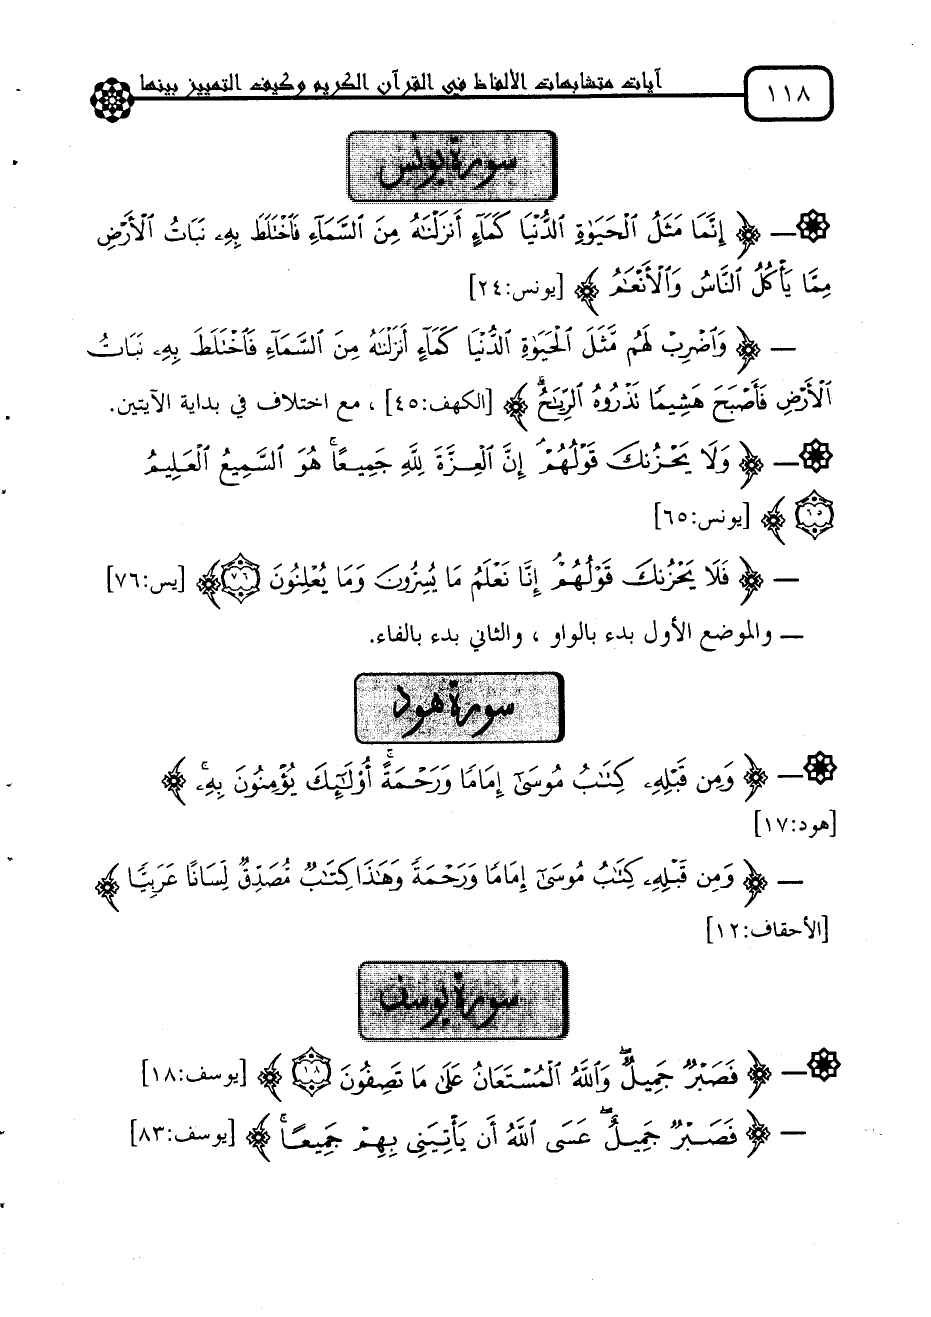 ١١٨
آيات متشابهات الألفاظ في القرآن الكريم وكيف التمييز بينها
سورة يونس
— ﴿ إِنَّمَا مَثَلُ الْحَيَوٰةِ الدُّنْيَا كَمَآءٍ أَنزَلْنَٰهُ مِنَ السَّمَآءِ فَاخْتَلَطَ بِهِۦ نَبَاتُ الْأَرْضِ
مِمَّا يَأْكُلُ النَّاسُ وَالْأَنْعَٰمُ ﴾ [يونس:٢٤]
— ﴿ وَاضْرِبْ لَهُم مَّثَلَ الْحَيَوٰةِ الدُّنْيَا كَمَآءٍ أَنزَلْنَٰهُ مِنَ السَّمَآءِ فَاخْتَلَطَ بِهِۦ نَبَاتُ
الْأَرْضِ فَأَصْبَحَ هَشِيمًا تَذْرُوهُ الرِّيَٰحُ ﴾ [الكهف:٤٥] ، مع اختلاف في بداية الآيتين.
— ﴿ وَلَا يَحْزُنكَ قَوْلُهُمْ ۘ إِنَّ الْعِزَّةَ لِلَّهِ جَمِيعًا ۚ هُوَ السَّمِيعُ الْعَلِيمُ
٦٥ ﴾ [يونس:٦٥]
— ﴿ فَلَا يَحْزُنكَ قَوْلُهُمْ ۘ إِنَّا نَعْلَمُ مَا يُسِرُّونَ وَمَا يُعْلِنُونَ ٧٦ ﴾ [يس:٧٦]
— والموضع الأول بدء بالواو ، والثاني بدء بالفاء.
سورة هود
— ﴿ وَمِن قَبْلِهِۦ كِتَٰبُ مُوسَىٰٓ إِمَامًا وَرَحْمَةً ۚ أُوْلَٰٓئِكَ يُؤْمِنُونَ بِهِۦ ۚ ﴾
[هود:١٧]
— ﴿ وَمِن قَبْلِهِۦ كِتَٰبُ مُوسَىٰٓ إِمَامًا وَرَحْمَةً وَهَٰذَا كِتَٰبٌ مُّصَدِّقٌ لِّسَانًا عَرَبِيًّا ﴾
[الأحقاف:١٢]
سورة يوسف
— ﴿ فَصَبْرٌ جَمِيلٌ ۖ وَاللَّهُ الْمُسْتَعَانُ عَلَىٰ مَا تَصِفُونَ ١٨ ﴾ [يوسف:١٨]
— ﴿ فَصَبْرٌ جَمِيلٌ ۖ عَسَى اللَّهُ أَن يَأْتِيَنِي بِهِمْ جَمِيعًا ۚ ﴾ [يوسف:٨٣]